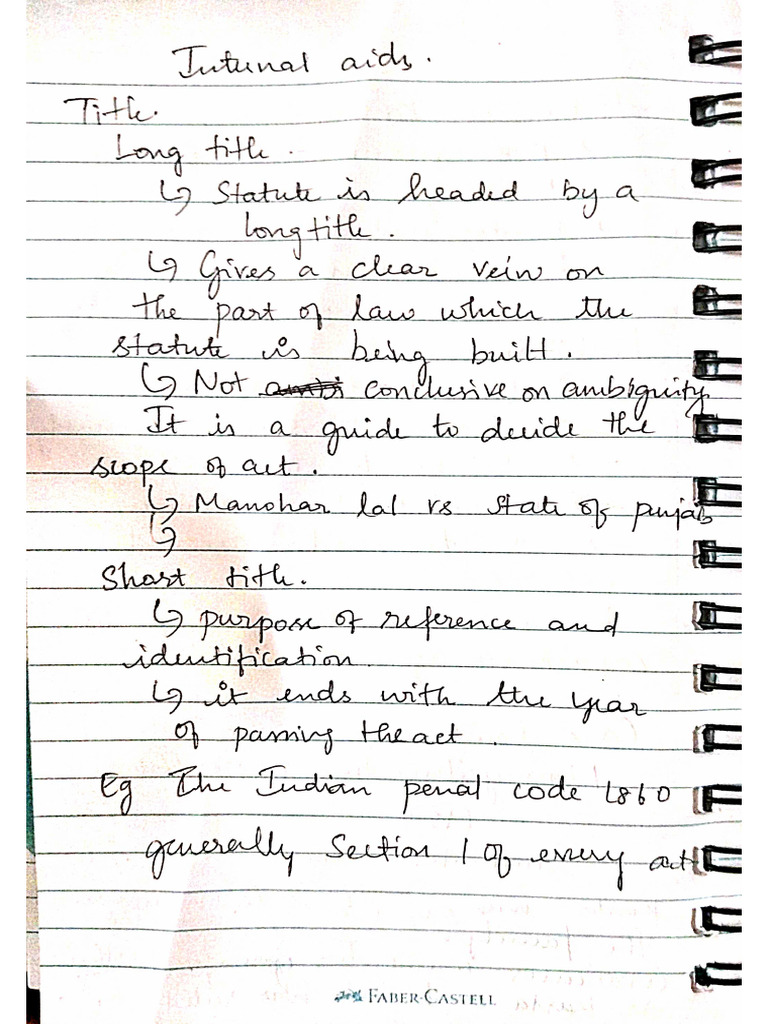 Internal aids.
Title.
Long title.
↳ Statute is headed by a
long title.
↳ Gives a clear vein on
the part of law which the
statute is being built.
↳ Not conclusive on ambiguity
It is a guide to decide the
scope of act.
↳ Manohar lal vs State of punjab
↳
Short title.
↳ purpose of reference and
identification
↳ it ends with the year
of passing the act.
Eg The Indian penal code 1860
generally Section 1 of every act
FABER-CASTELL